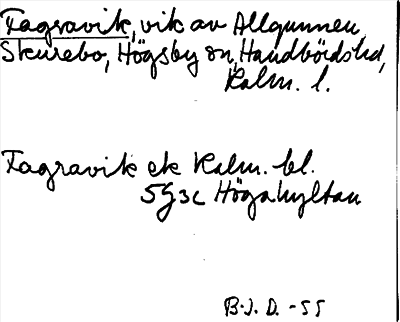 Fagravik, vik av Allgunnen,
Skurebo, Högsby sn, Handbörds hd,
Kalm. l.
Fagravik ek Kalm. bl.
5G3c Högahyltan
B.J.D. -55